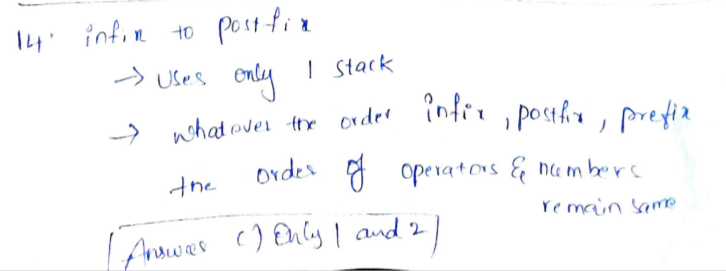 14. infix to postfix
→ Uses only 1 stack
→ whatover the order infix, postfix, prefix
the order of operators & numbers
remain same
Answer C) Only 1 and 2